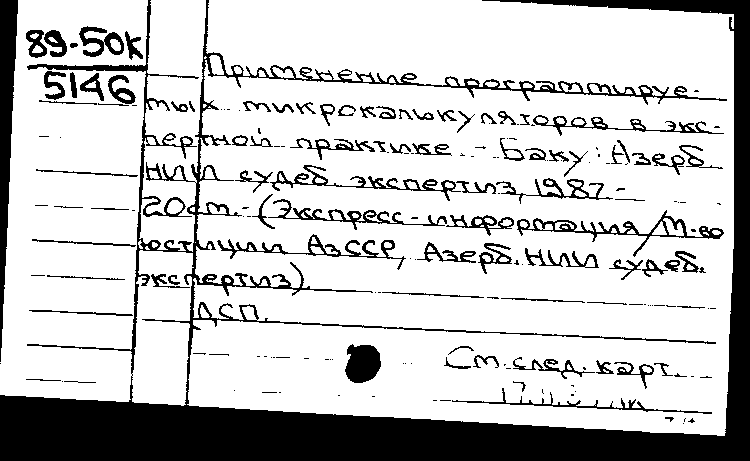 89-50к
5146
Применение программируе-
мых микрокалькуляторов в экс-
пертной практике. - Баку: Азерб.
НИИ судеб. экспертиз, 1987 -
20см. - (Экспресс-информация / М-во
юстиции АзССР, Азерб. НИИ судеб.
экспертиз).
ДСП.
См. след. карт.